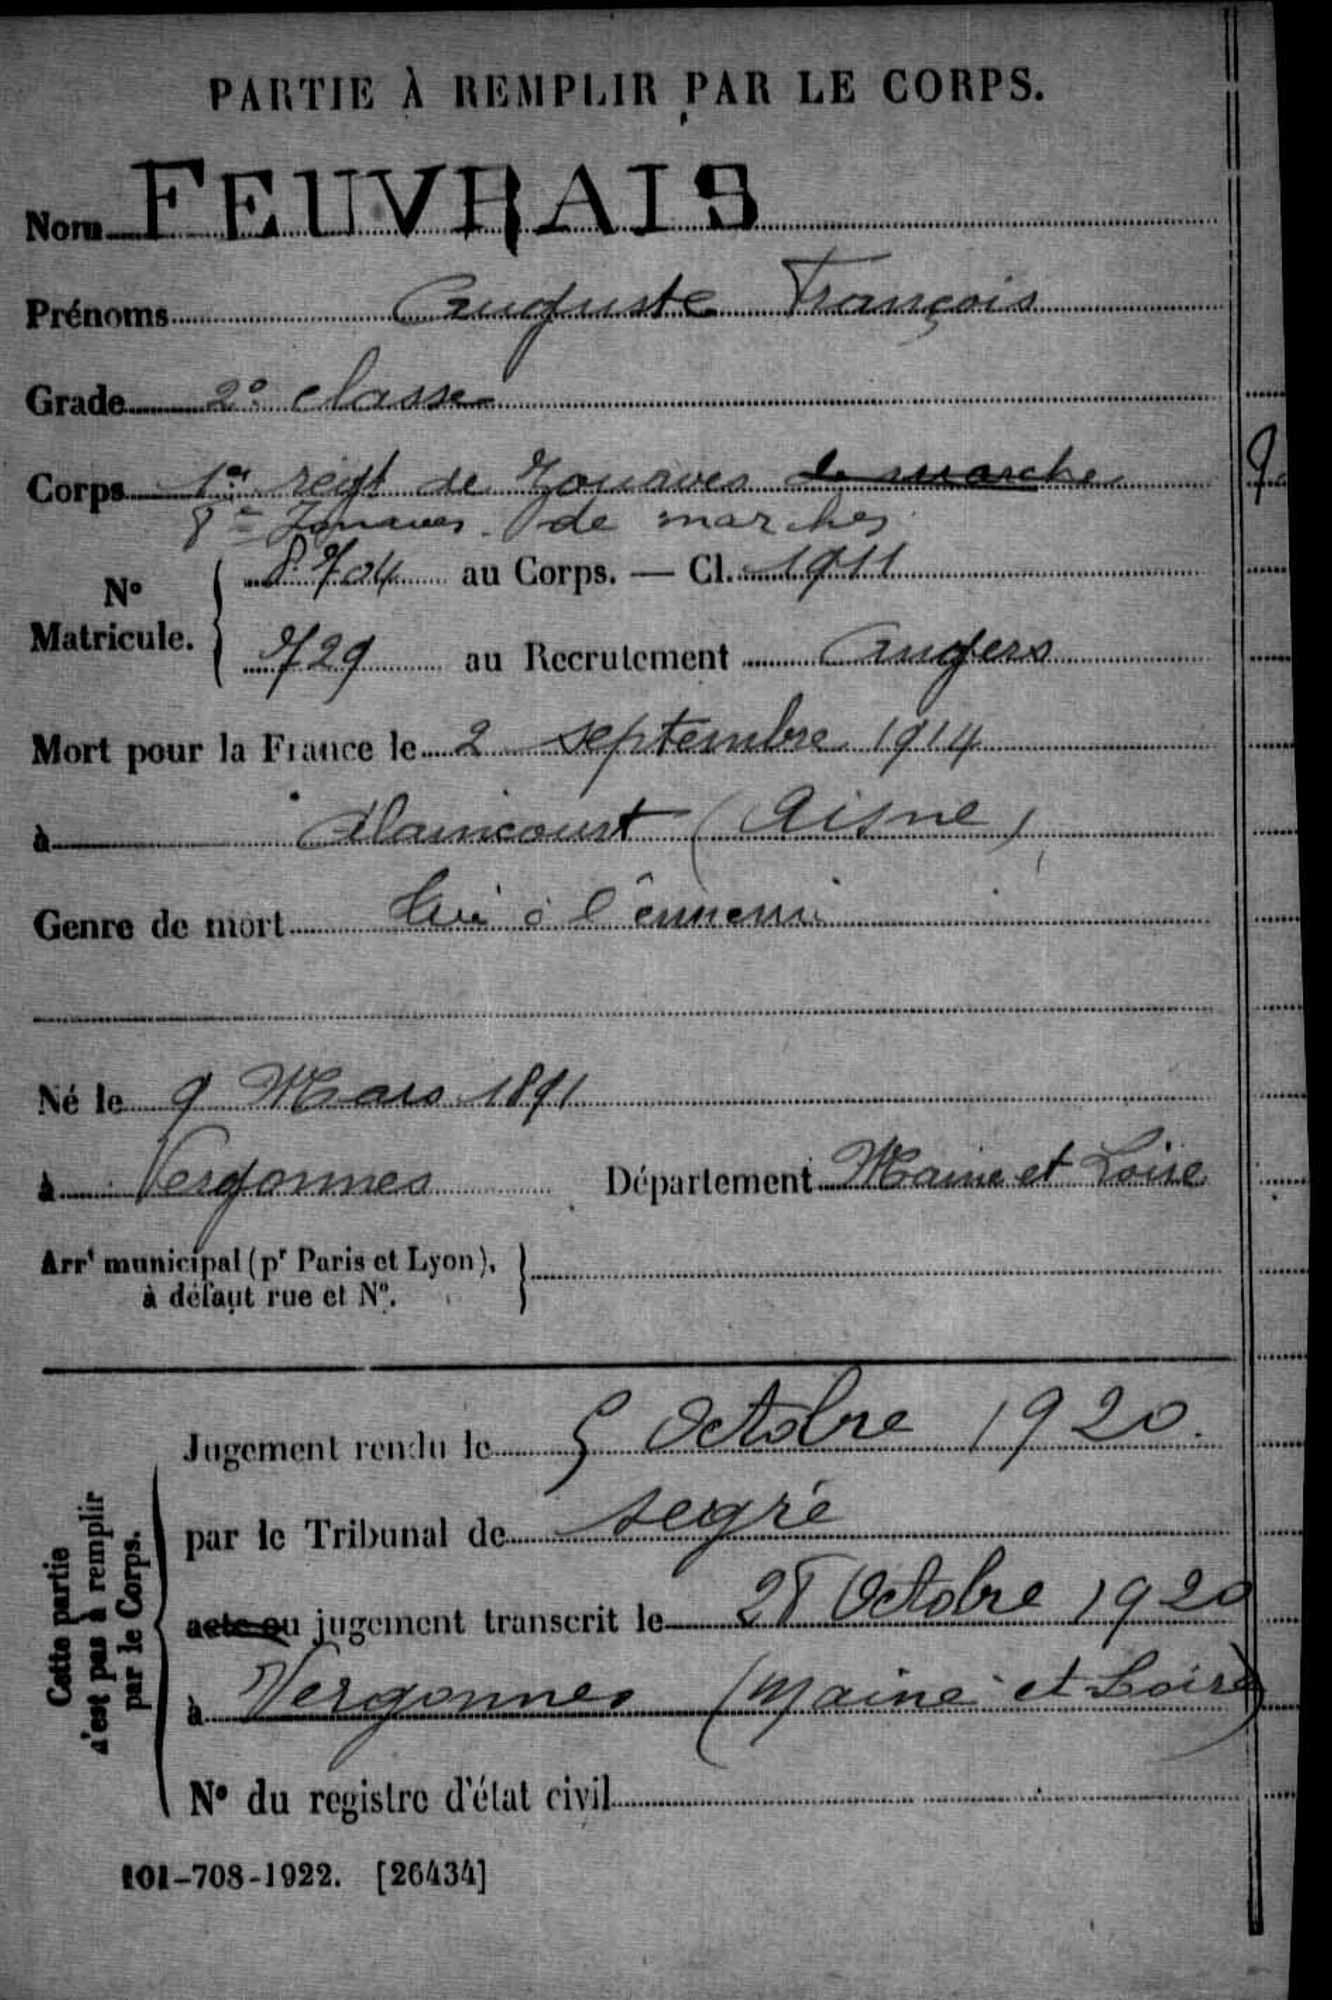 PARTIE À REMPLIR PAR LE CORPS.
Nom FEUVRAIS
Prénoms Auguste François
Grade 2e classe
Corps 1er régt de Zouaves de marche
8e Zouaves de marche
No Matricule. 8.704 au Corps. — Cl. 1911
729 au Recrutement Angers
Mort pour la France le 2 septembre 1914
à Alaincourt (Aisne)
Genre de mort tué à l'ennemi
Né le 9 Mars 1891
à Vergonnes Département Maine et Loire
Arrt municipal (pr Paris et Lyon),
à défaut rue et No.
Cette partie
n'est pas à remplir
par le Corps.
Jugement rendu le 5 Octobre 1920.
par le Tribunal de Segré
acte ou jugement transcrit le 28 Octobre 1920
à Vergonnes (Maine et Loire)
No du registre d'état civil
101-708-1922. [26434]